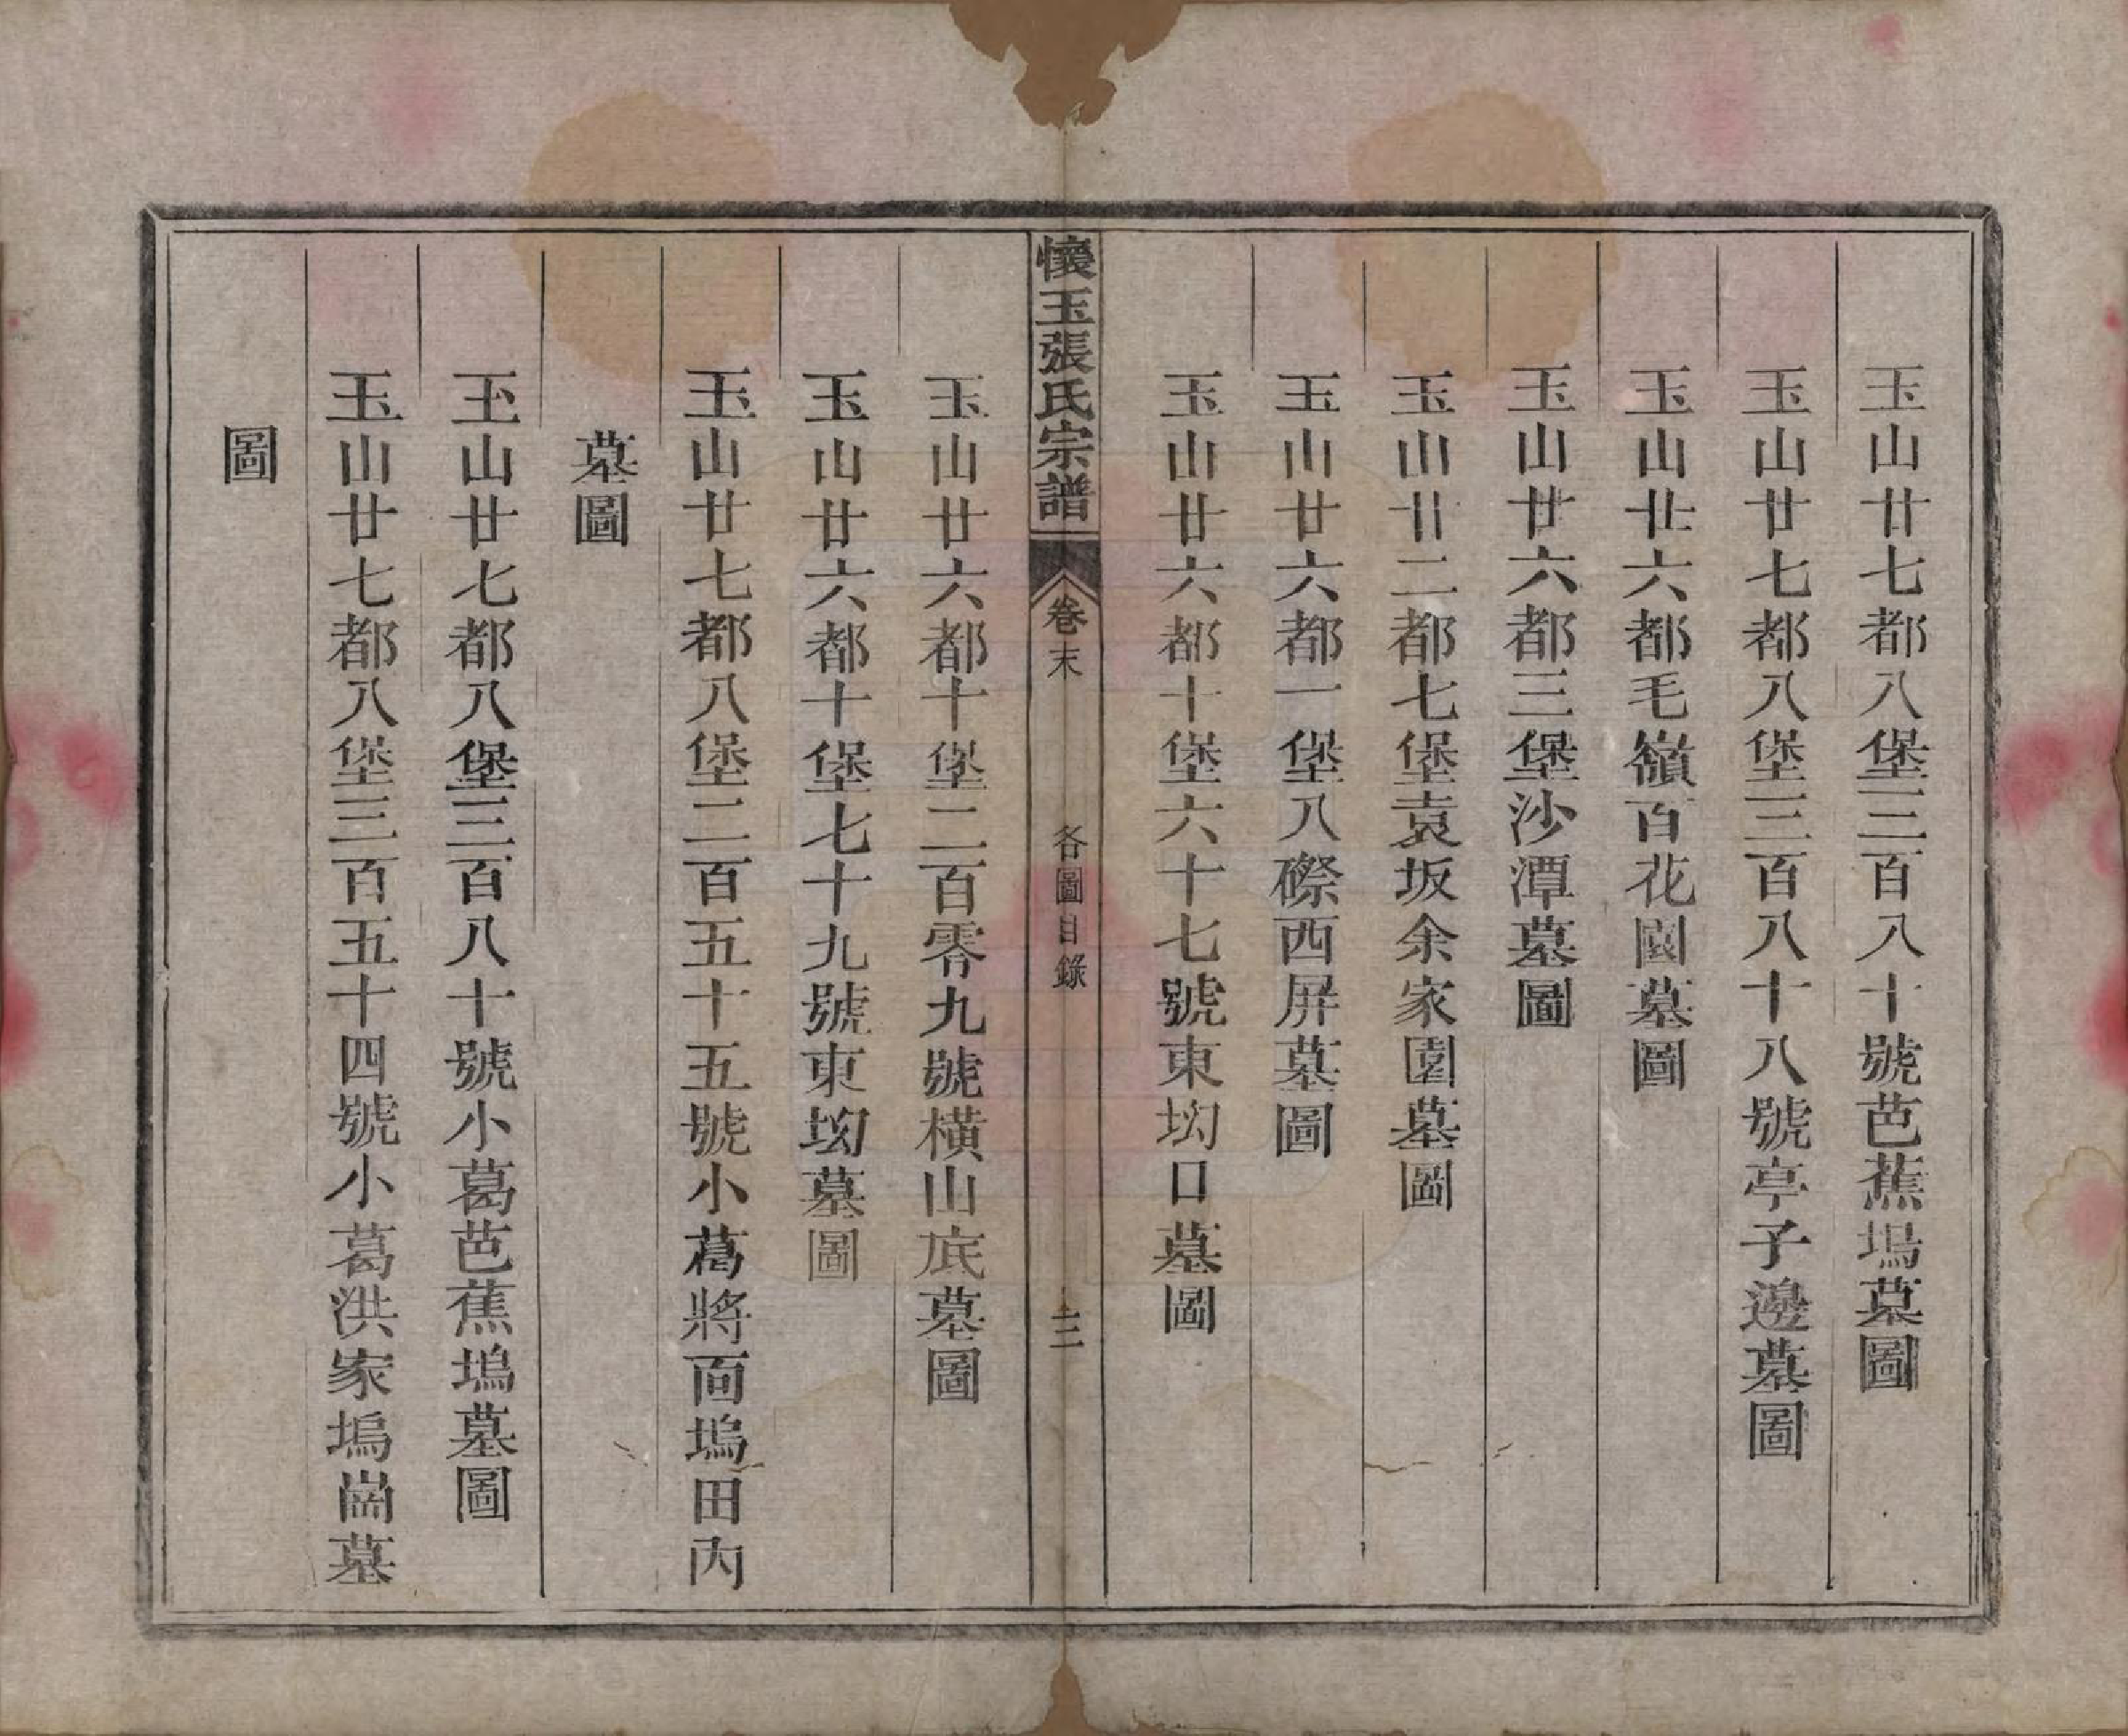 玉山廿七都八堡三百八十號芭蕉塢墓圖
玉山廿七都八堡三百八十八號亭子邊墓圖
玉山廿六都毛嶺百花園墓圖
玉山廿六都三堡沙潭墓圖
玉山廿二都七堡袁坂余家園墓圖
玉山廿六都一堡八磜西屏墓圖
玉山廿六都十堡六十七號東坳口墓圖
懷玉張氏宗譜
卷末
各圖目錄
三
玉山廿六都十堡二百零九號橫山底墓圖
玉山廿六都十堡七十九號東坳墓圖
玉山廿七都八堡二百五十五號小葛將面塢田內
墓圖
玉山廿七都八堡三百八十號小葛芭蕉塢墓圖
玉山廿七都八堡三百五十四號小葛洪家塢崗墓
圖